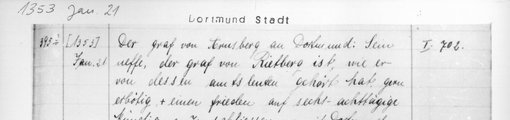 1353 Jan 21
Dortmund Stadt
[1353] Jan. 21
Der graf von Arnsberg an Dortmund: Sein
neffe, der graf von Rietberg ist, wie er
von dessen amtsleuten gehört hat, gern
erbötig, einen frieden auf sechs-achttägige
I, 702.